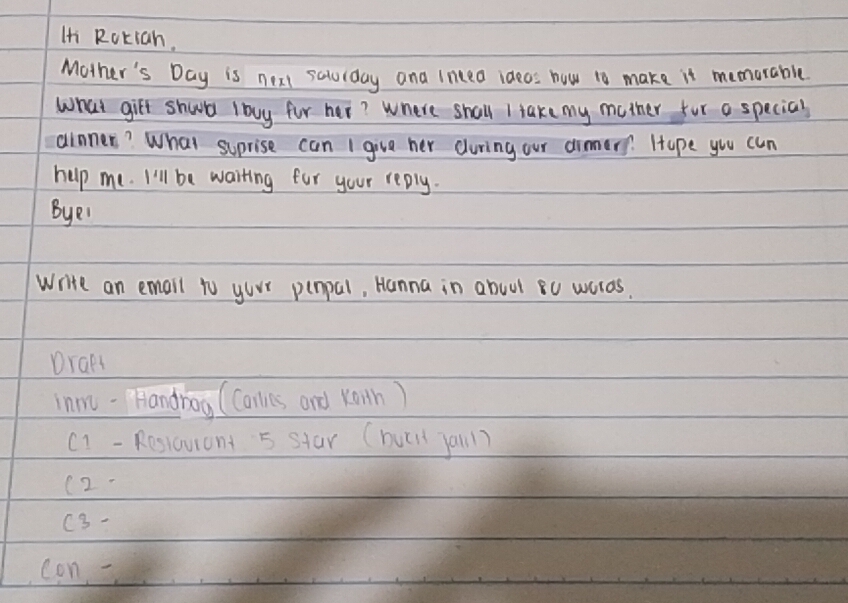 Hi Rokiah,
Mother's Day is next saturday and I need ideas how to make it memorable.
What gift should I buy for her? Where shall I take my mother for a special
dinner? What suprise can I give her during our dinner? Hope you can
help me. I'll be waiting for your reply.
Bye!
Write an email to your penpal, Hanna in about 80 words.
Draft
intro - Handbag (Carlos and Keith)
C1 - Restaurant 5 star (bukit jalil)
C2 -
C3 -
Con -